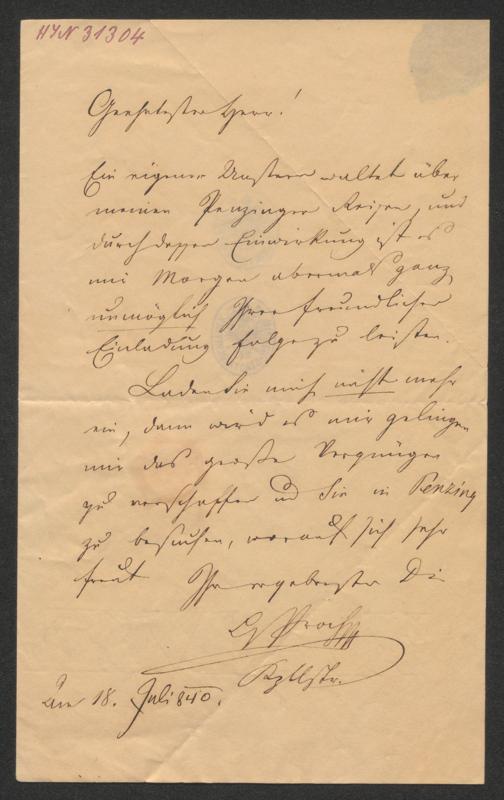 HIN 31304
Geehrtester Herr!
Ein eigener Unstern waltet über
meinen Penzinger Reisen, und
durch dessen Einwirkung ist es
mir Morgen abermals ganz
unmöglich Ihrer freundlichen
Einladung Folge zu leisten.
Laden Sie mich nicht mehr
ein, dann wird es mir gelingen
mir das große Vergnügen
zu verschaffen und Sie in Penzing
zu besuchen, worauf sich sehr
freut Ihr ergebenster
Proch
Kplmstr.
am 18. Juli 840.